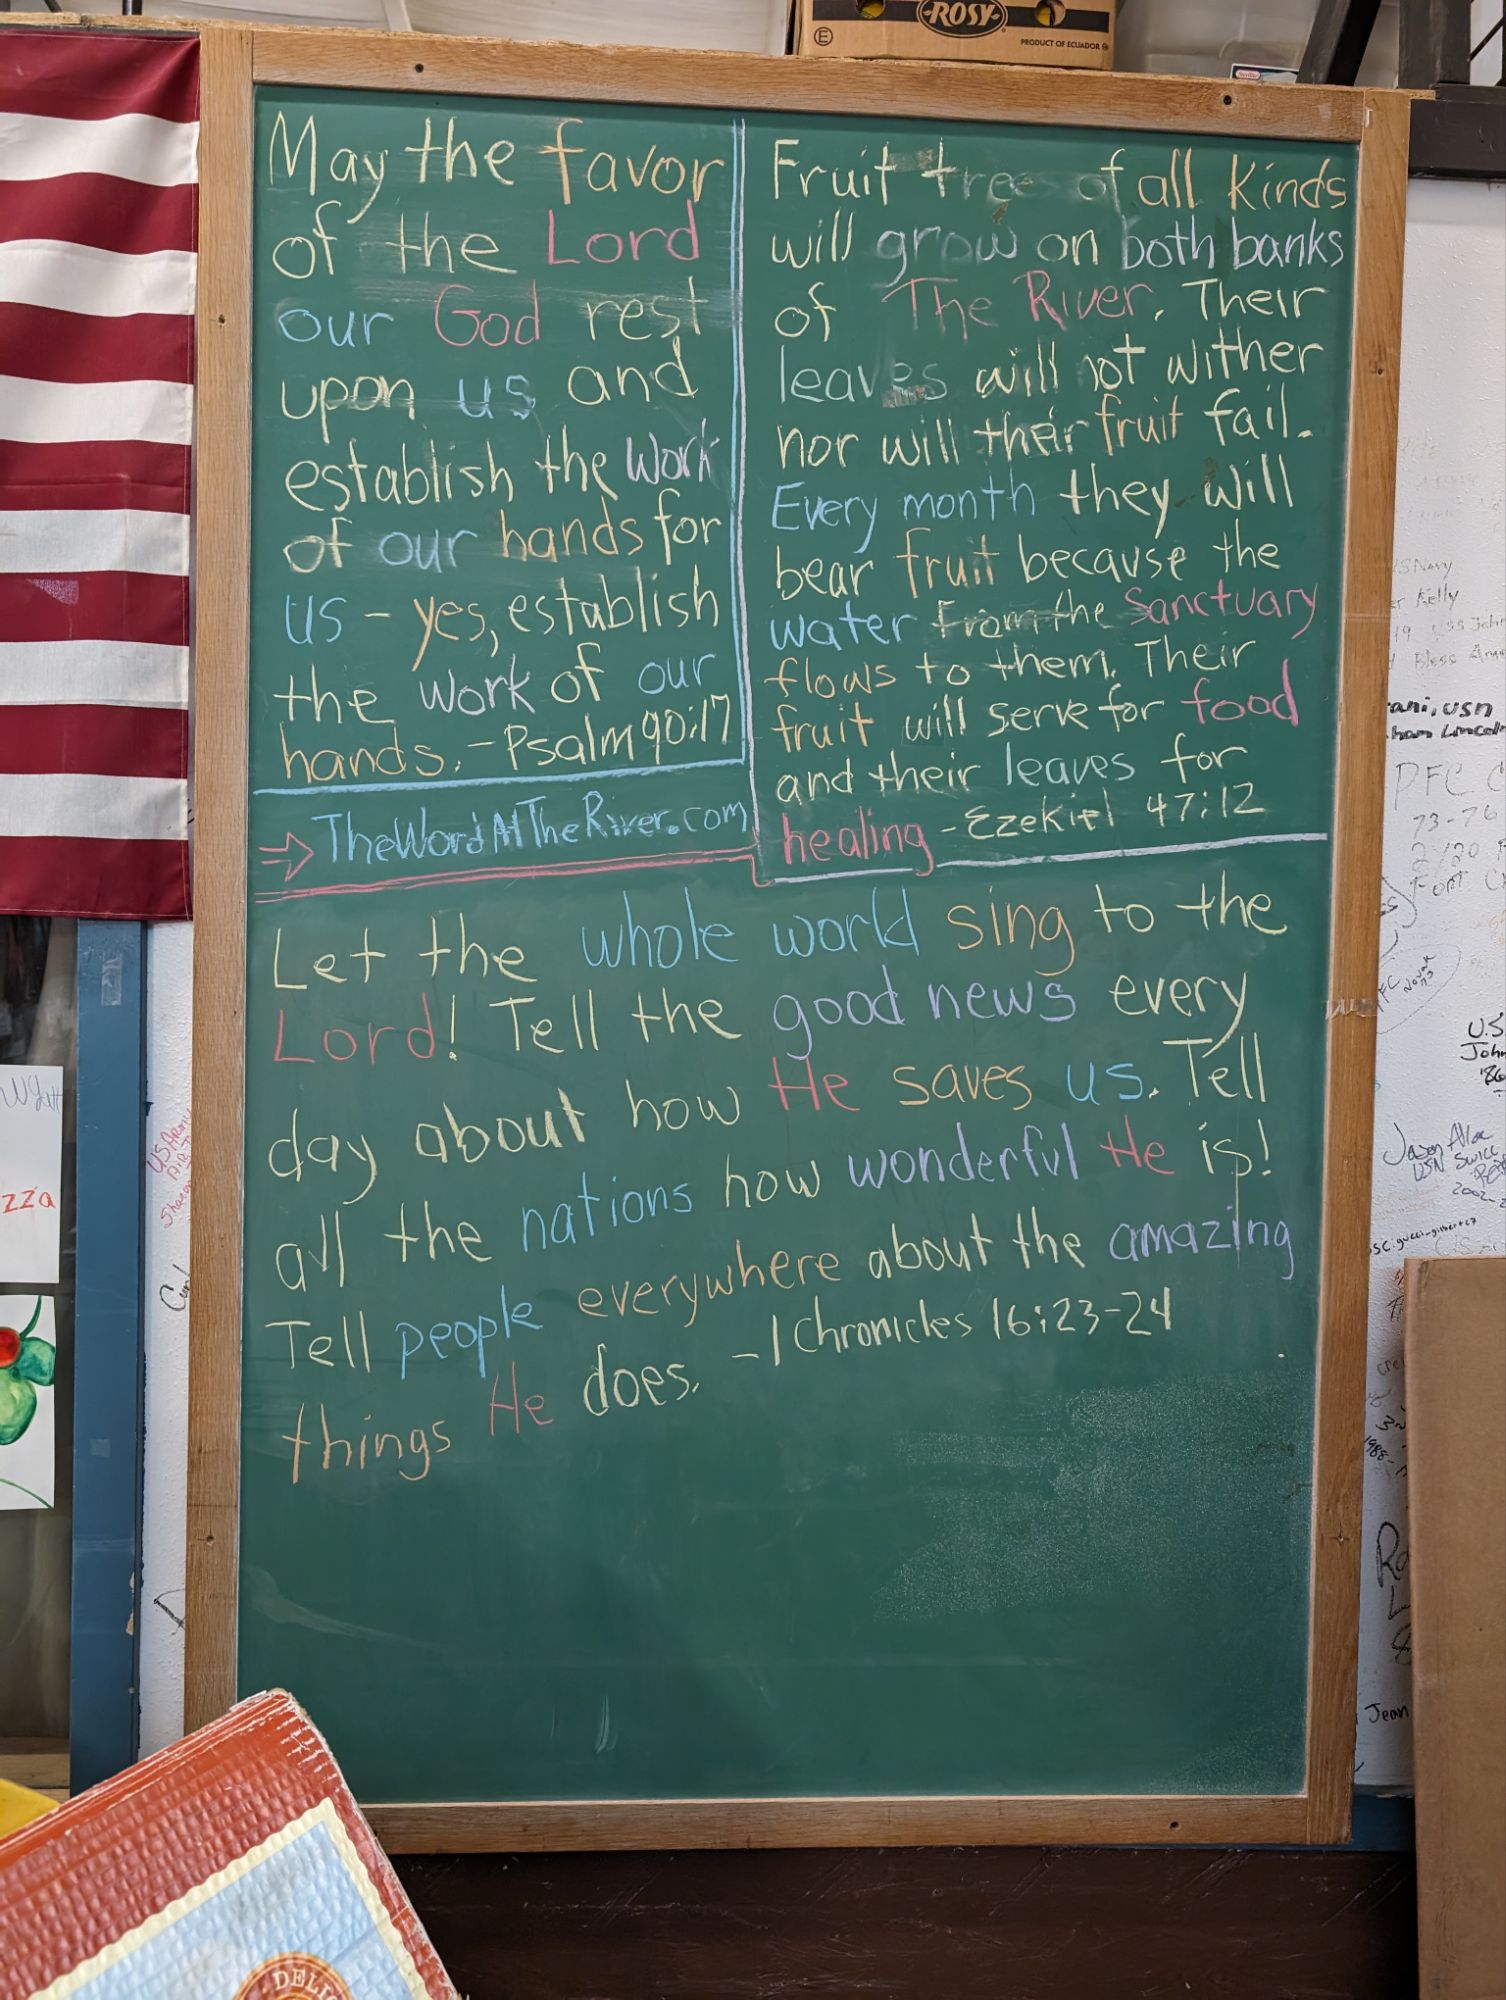 ROSY
PRODUCT OF ECUADOR
May the favor
of the Lord
our God rest
upon us and
establish the work
of our hands for
us - yes, establish
the work of our
hands. - Psalm 90:17
TheWordAtTheRiver.com
Fruit trees of all kinds
will grow on both banks
of The River. Their
leaves will not wither
nor will their fruit fail.
Every month they will
bear fruit because the
water from the Sanctuary
flows to them. Their
fruit will serve for food
and their leaves for
healing - Ezekiel 47:12
Let the whole world sing to the
Lord! Tell the good news every
day about how He saves us. Tell
all the nations how wonderful He is!
Tell people everywhere about the amazing
things He does. - 1 Chronicles 16:23-24
US Army
zza
Kelly
USN
PFC
73-76
U.S
John
'86
Jason
USN
Jean
DELIC